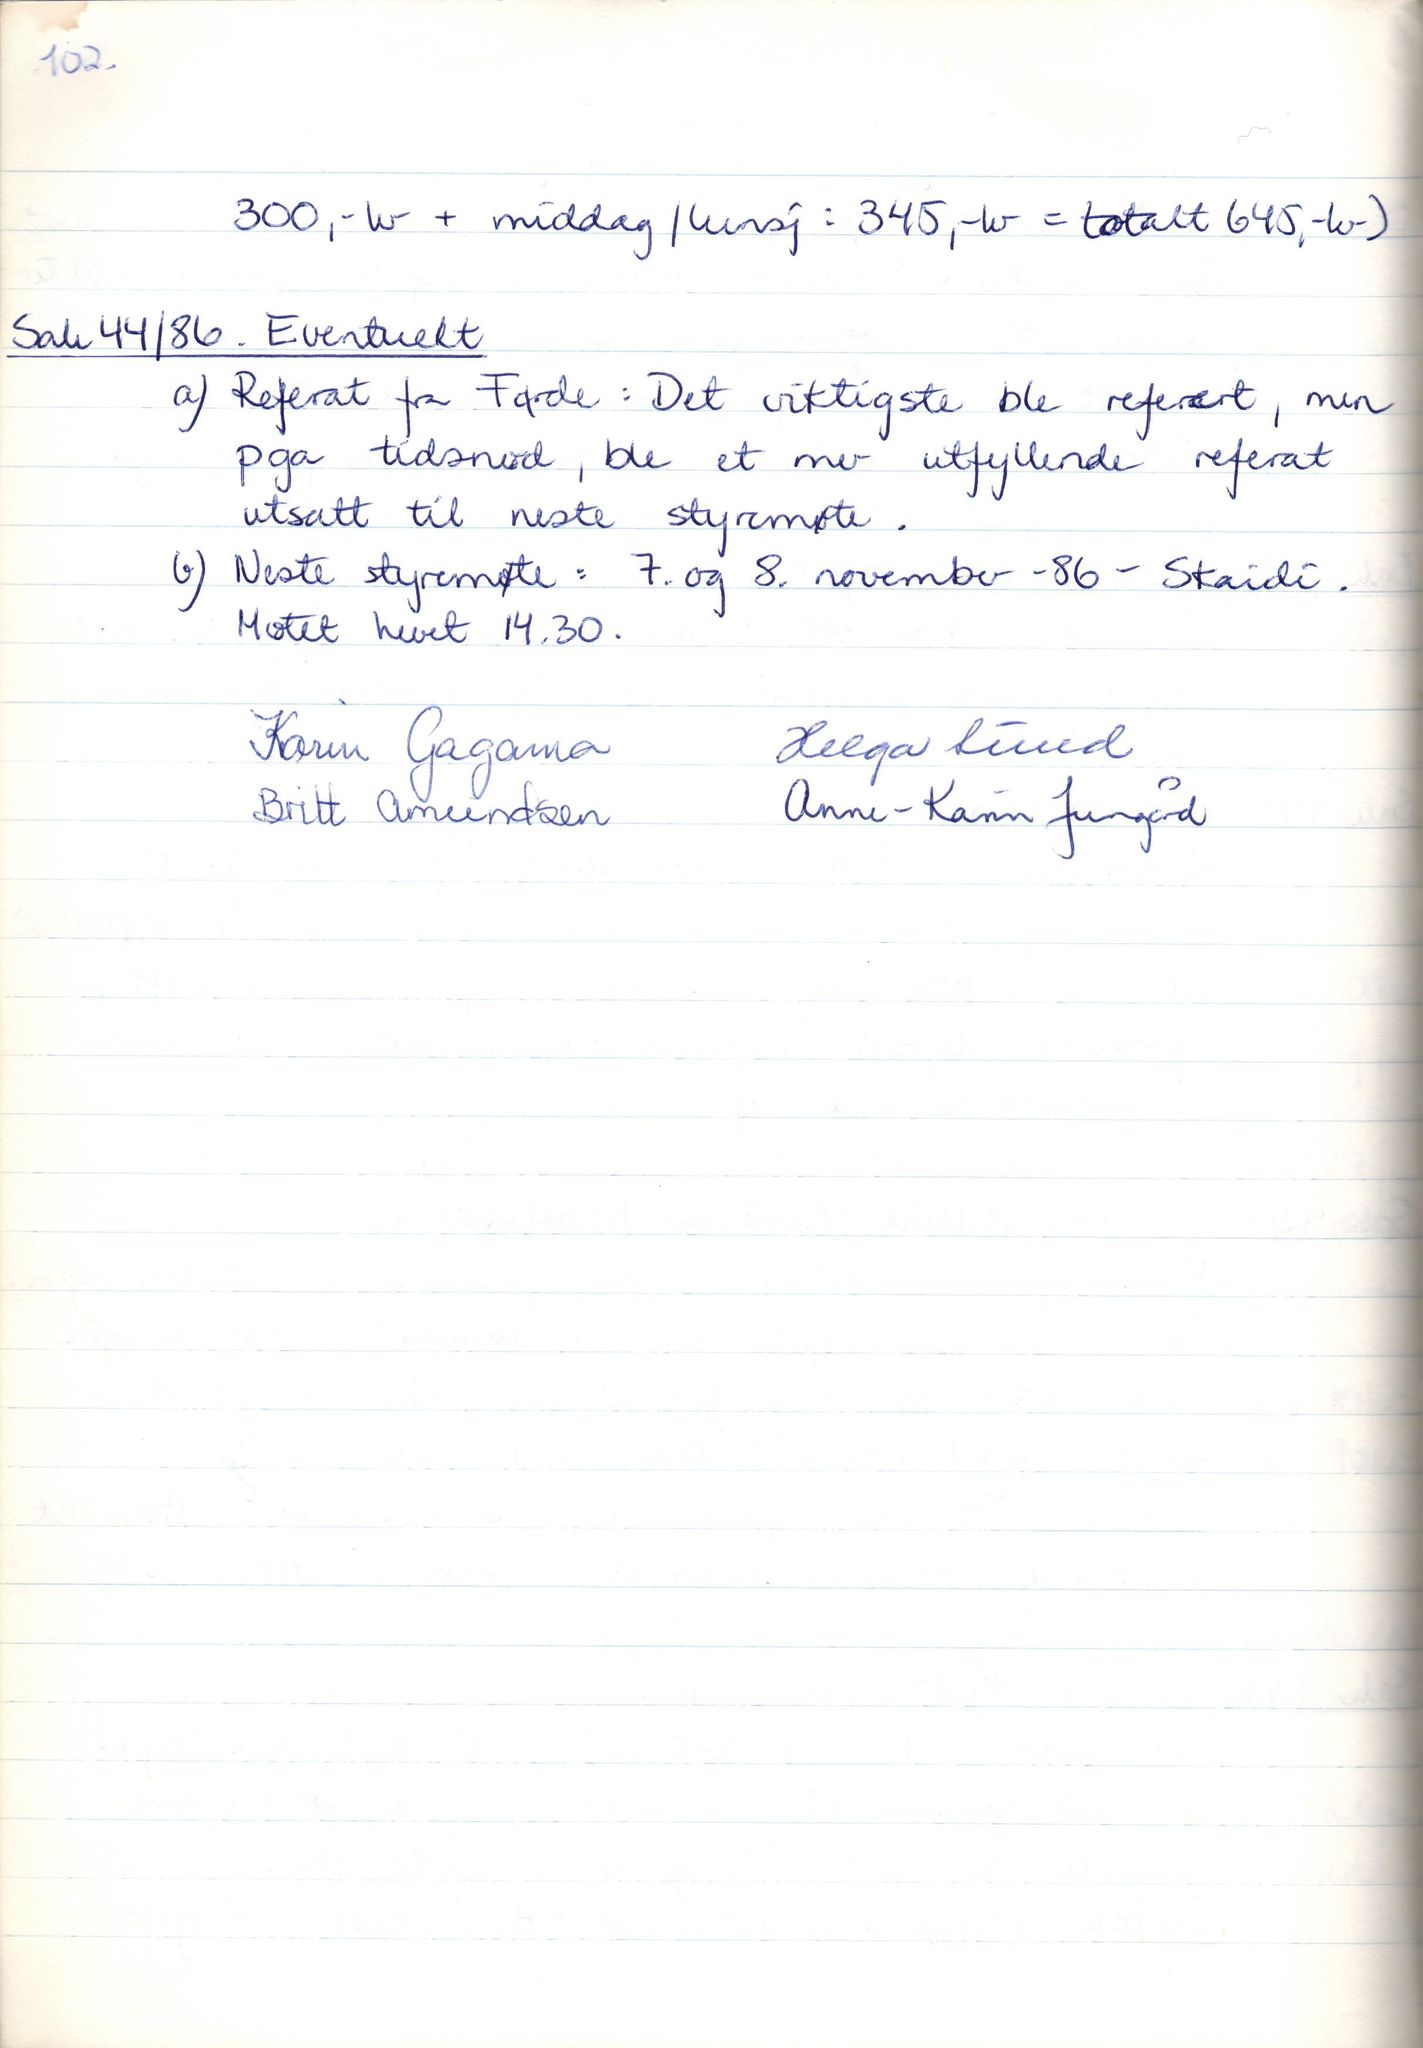 102.
300,-kr + middag/lunsj: 345,-kr = totalt 645,-kr)
Sak 44/86. Eventuelt
a) Referat fra Førde: Det viktigste ble referert, men
pga tidsnød, ble et mer utfyllende referat
utsatt til neste styremøte.
b) Neste styremøte: 7. og 8. november -86 - Skaidi.
Møtet hevet 14.30.
Karin Gagama Helga Lund
Britt Amundsen Anne-Karin Jungård